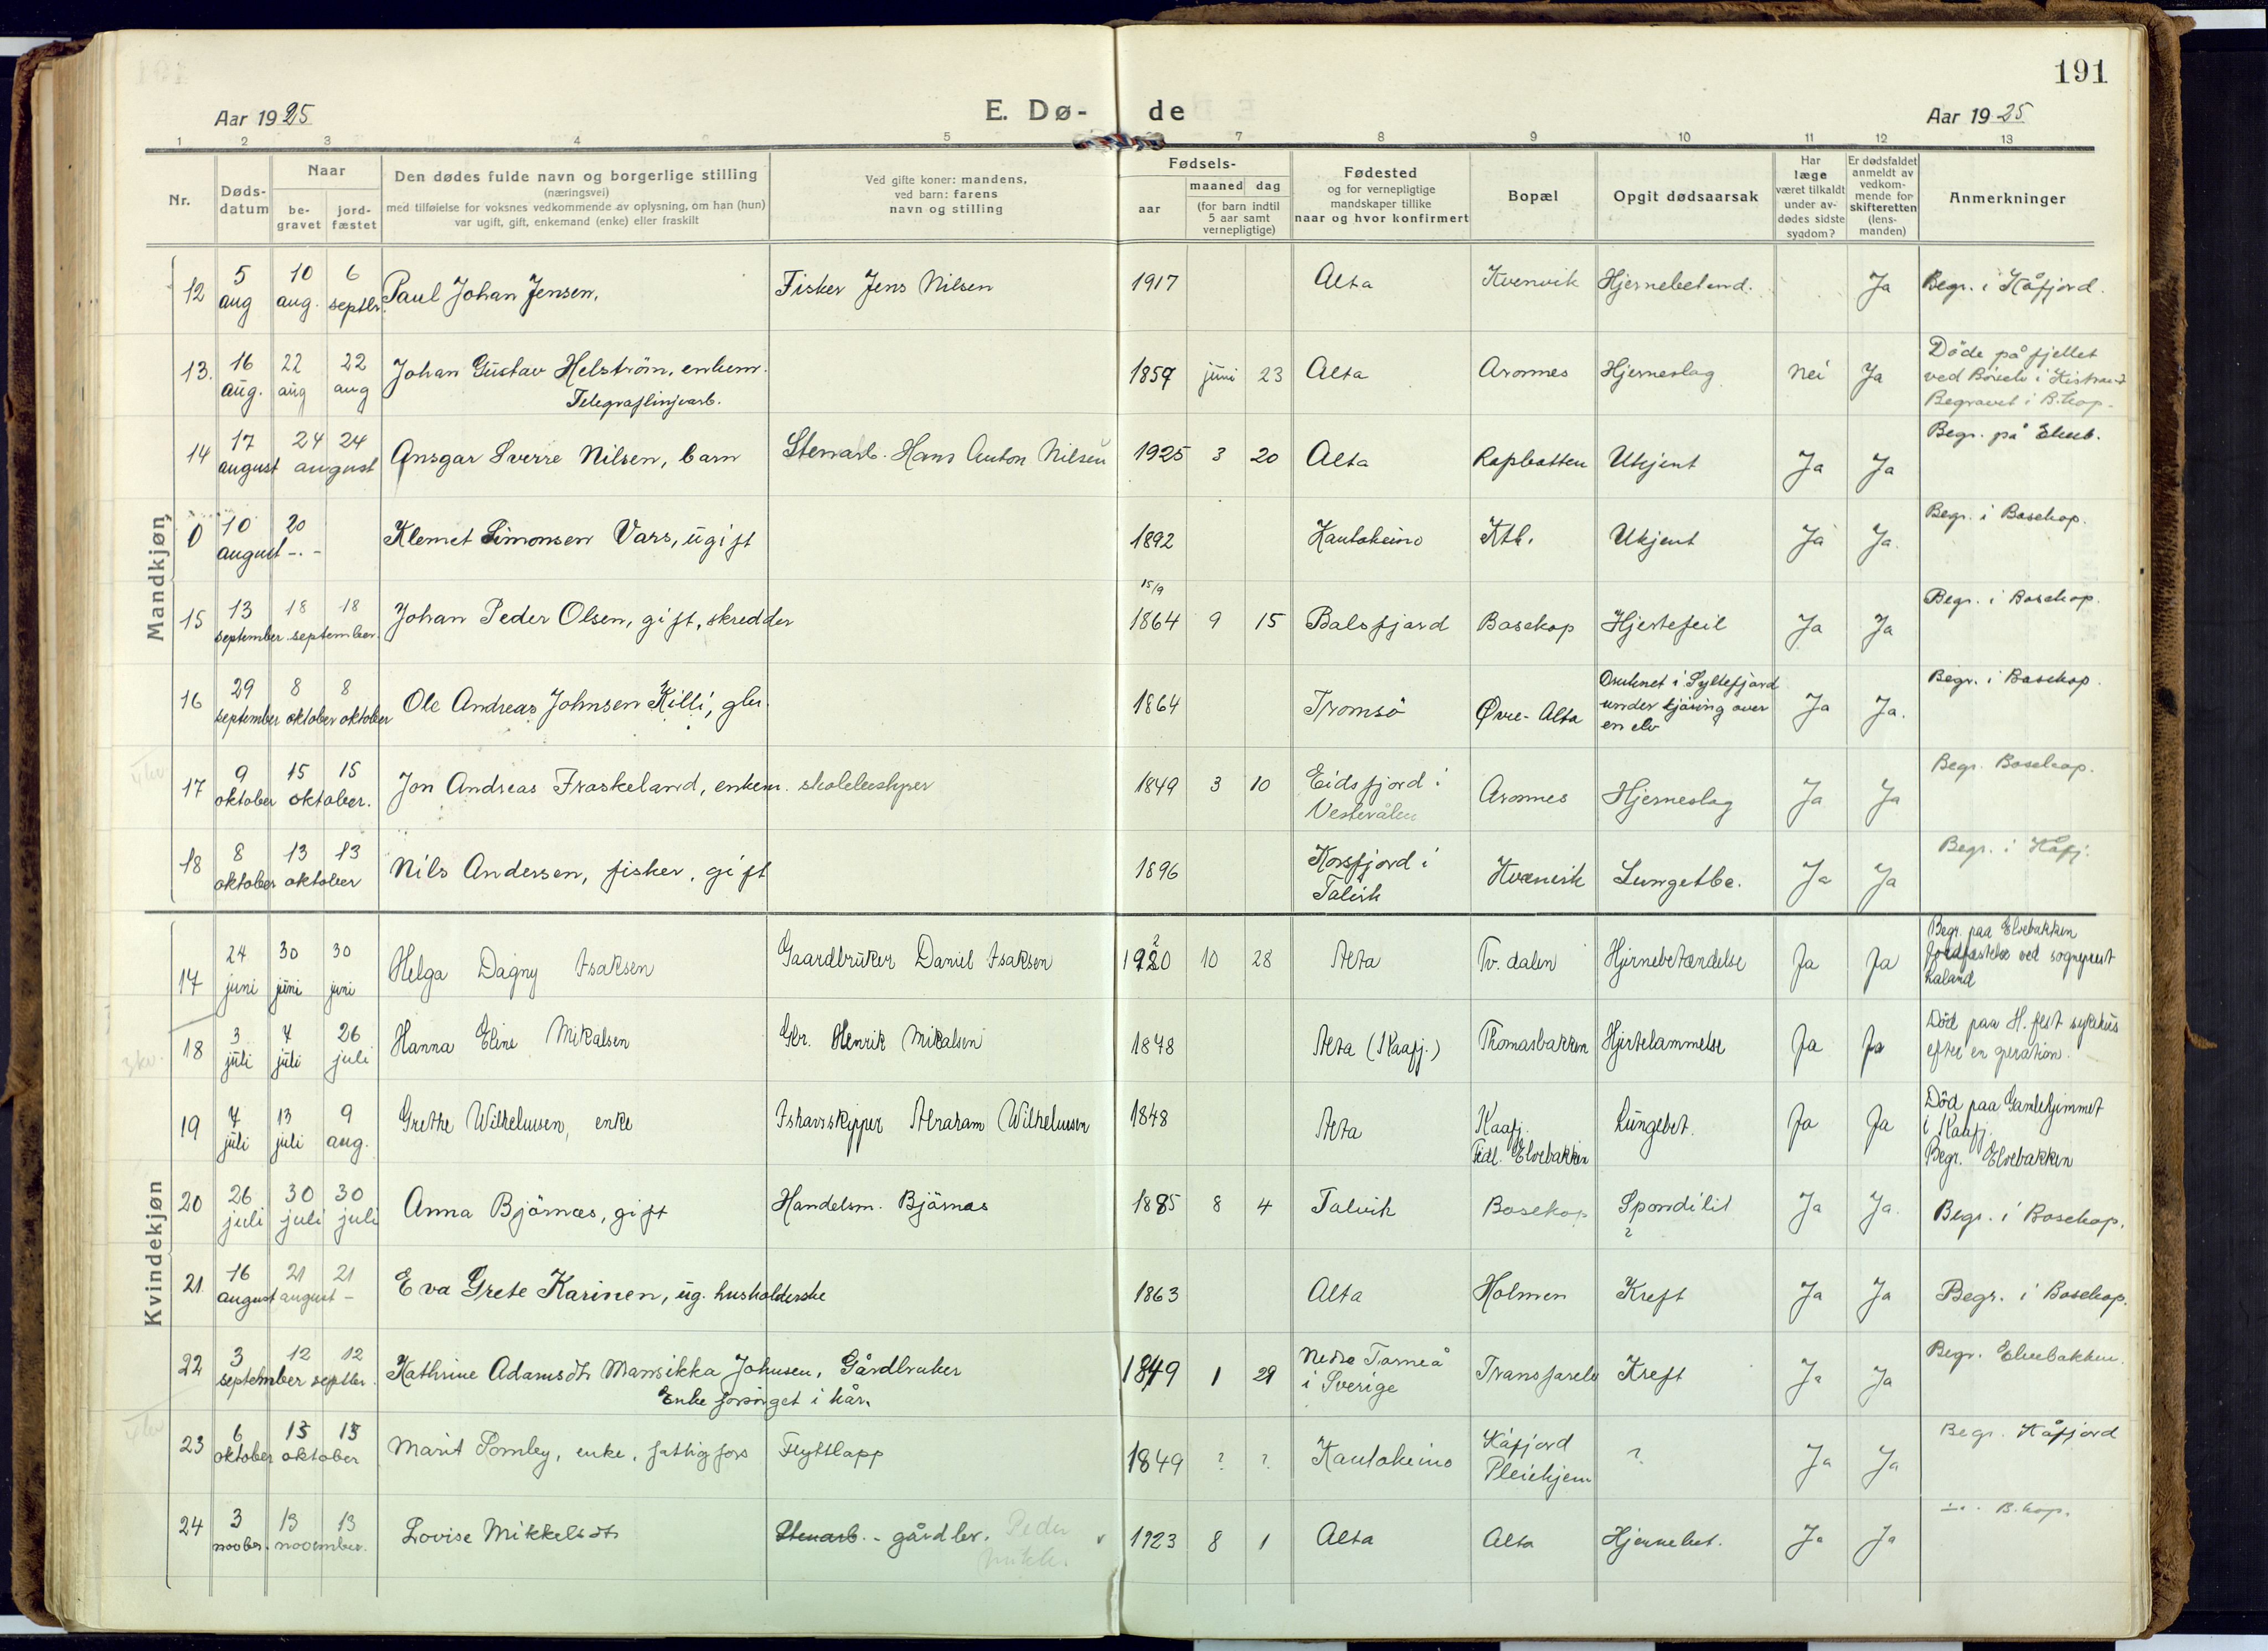 191
Aar 1925
E. Dø-
de
Aar 1925
1 2 3 4 5 7 8 9 10 11 12 13
Nr.
Døds-
datum
Naar
be-
gravet
jord-
fæstet
Den dødes fulde navn og borgerlige stilling
(næringsvei)
med tilføielse for voksnes vedkommende av oplysning, om han (hun)
var ugift, gift, enkemand (enke) eller fraskilt
Ved gifte koner: mandens,
ved barn: farens
navn og stilling
Fødsels-
aar
maaned dag
(for barn indtil
5 aar samt
vernepligtige)
Fødested
og for vernepligtige
mandskaper tillike
naar og hvor konfirmert
Bopæl
Opgit dødsaarsak
Har
læge
været tilkaldt
under av-
dødes sidste
sygdom?
Er dødsfaldet
anmeldt av
vedkom-
mende for
skifteretten
(lens-
manden)
Anmerkninger
Mandkjøn
12 5 aug 10 aug. 6 septbr. Paul Johan Jensen. Fisker Jens Nilsen 1917 Alta Kvenvik Hjernebetend. Ja Begr. i Kåfjord.
13. 16 aug. 22 aug 22 aug Johan Gustav Helström, enkem.
Telegraflinjearb.
1857 juni 23 Alta Aronnes Hjerneslag Nei Ja Döde på fjellet
ved Börselv i Kistrand
Begravet i B.kop.
14 17 august 24 24 august Ansgar Sverre Nilsen, barn Stenarb. Hans Anton Nilsen 1925 3 20 Alta Rapbotten Ukjent Ja Ja Begr. på Elveb.
0 10 august 20 -.- Klemet Simonsen Vars, ugift 1892 Kautokeino Ktk. Ukjent Ja Ja. Begr. i Bosekop.
15/9
15 13 september 18 18 september. Johan Peder Olsen, gift, skredder 1864 9 15 Balsfjord Bosekop Hjertefeil Ja Ja Begr. i Bosekop.
16 29 september 8 oktober 8 oktober Ole Andreas Johnsen Killi, gbr. 1864 Tromsö Øvre-Alta Druknet i Syltefjord
under kjöring over
en elv
Ja Ja. Begr. i Bosekop.
17 9 oktober 15 15 oktober. Jon Andreas Fraskeland, enkem. skolebestyrer 1849 3 10 Eidsfjord i
Vesterålen
Aronnes Hjerneslag Ja Ja Begr. Bosekop.
18 8 oktober 13 13 oktober Nils Andersen, fisker, gift 1896 Korsfjord i
Talvik
Kvænvik Lungetbc. Ja Ja Begr. i Kåfj.
Kvindekjøn
17 24 juni 30 juni 30 juni Helga Dagny Isaksen Gaardbruker Daniel Isaksen 1920 10 28 Alta Tv. dalen Hjernebetændelse Ja Ja Begr. paa Elvebakken
Jordfæstelse ved sogneprest
Kaland
18 3 juli 7 juli 26 juli Hanna Eline Mikalsen Gbr. Henrik Mikalsen 1848 Alta (Kaafj.) Thomasbakken Hjertelammelse Ja Ja Död paa H.fest sykehus
efter en operation.
19 7 juli 13 juli 9 aug. Grethe Wilhelmsen, enke Ishavsskipper Abraham Wilhelmsen 1848 Alta Kaafj.
Tidl. Elvebakken
Lungebet. Ja Ja Död paa Gamlehjemmet
i Kaafj.
Begr. Elvebakken
20 26 juli 30 juli 30 juli Anna Björnæs, gift Handelsm. Björnæs 1885 8 4 Talvik Bosekop Spondilit
?
Ja Ja. Begr. i Bosekop.
21. 16 august 21 august 21 - Eva Grete Karinen, ug. husholderske 1863 Alta Holmen Kreft Ja Ja Begr. i Bosekop.
22 3 september 12 12 septbr. Kathrine Adamsdtr Mansikka Johnsen, Gårdbruker
Enke forsörget i kår.
1849 1 29 Nedre Torneå
i Sverige
Transfarelv Kreft Ja Ja Begr. Elvebakken.
23 6 oktober 15 15 oktober Marit Somby, enke, fattigfors Flyttlapp 1849 ? ? Kautokeino Kåfjord
Pleiehjem
? Ja Ja Begr. Kåfjord
24 3 novbr. 13 13 november. Lovise Mikkelsdtr Stenarb. - gårdbr. Peder
Mikk.
1923 8 1 Alta Alta Hjernebet. Ja Ja -.- B.kop.